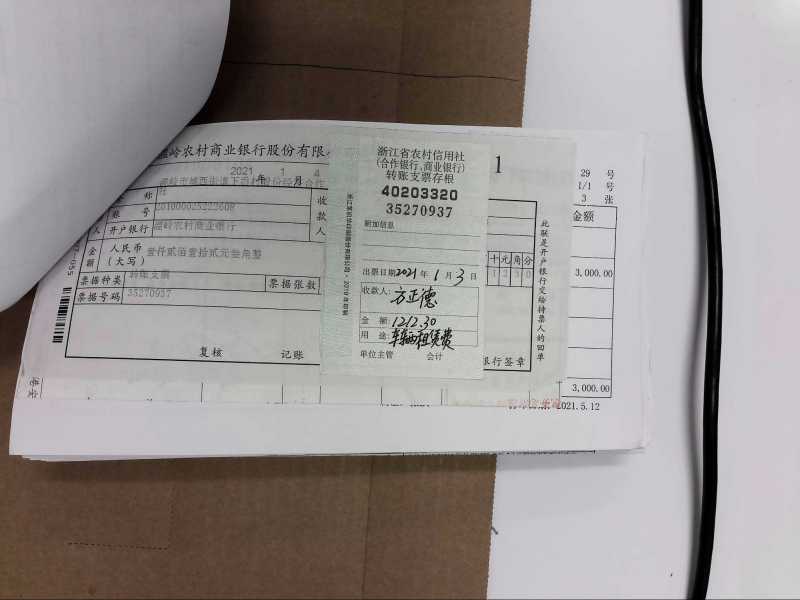 岭农村商业银行股份有限
2021年1月4
称
账号 201000025222608
人 开户银行 温岭农村商业银行
收款人
金额
人民币
(大写) 壹仟贰佰壹拾贰元叁角整
票据种类 转账支票 票据张数
票据号码 35270937
复核 记账
浙江省农村信用社
(合作银行、商业银行)
转账支票存根
40203320
35270937
附加信息
出票日期 2021年1月3日
收款人:
方正德
金额: 1212.30
用途: 车辆租赁费
单位主管 会计
1
十元角分
1230
行签章
此联是开户银行交给持票人的回单
29 号
1/1 号
3 张
金额
3,000.00
3,000.00
2021.5.12